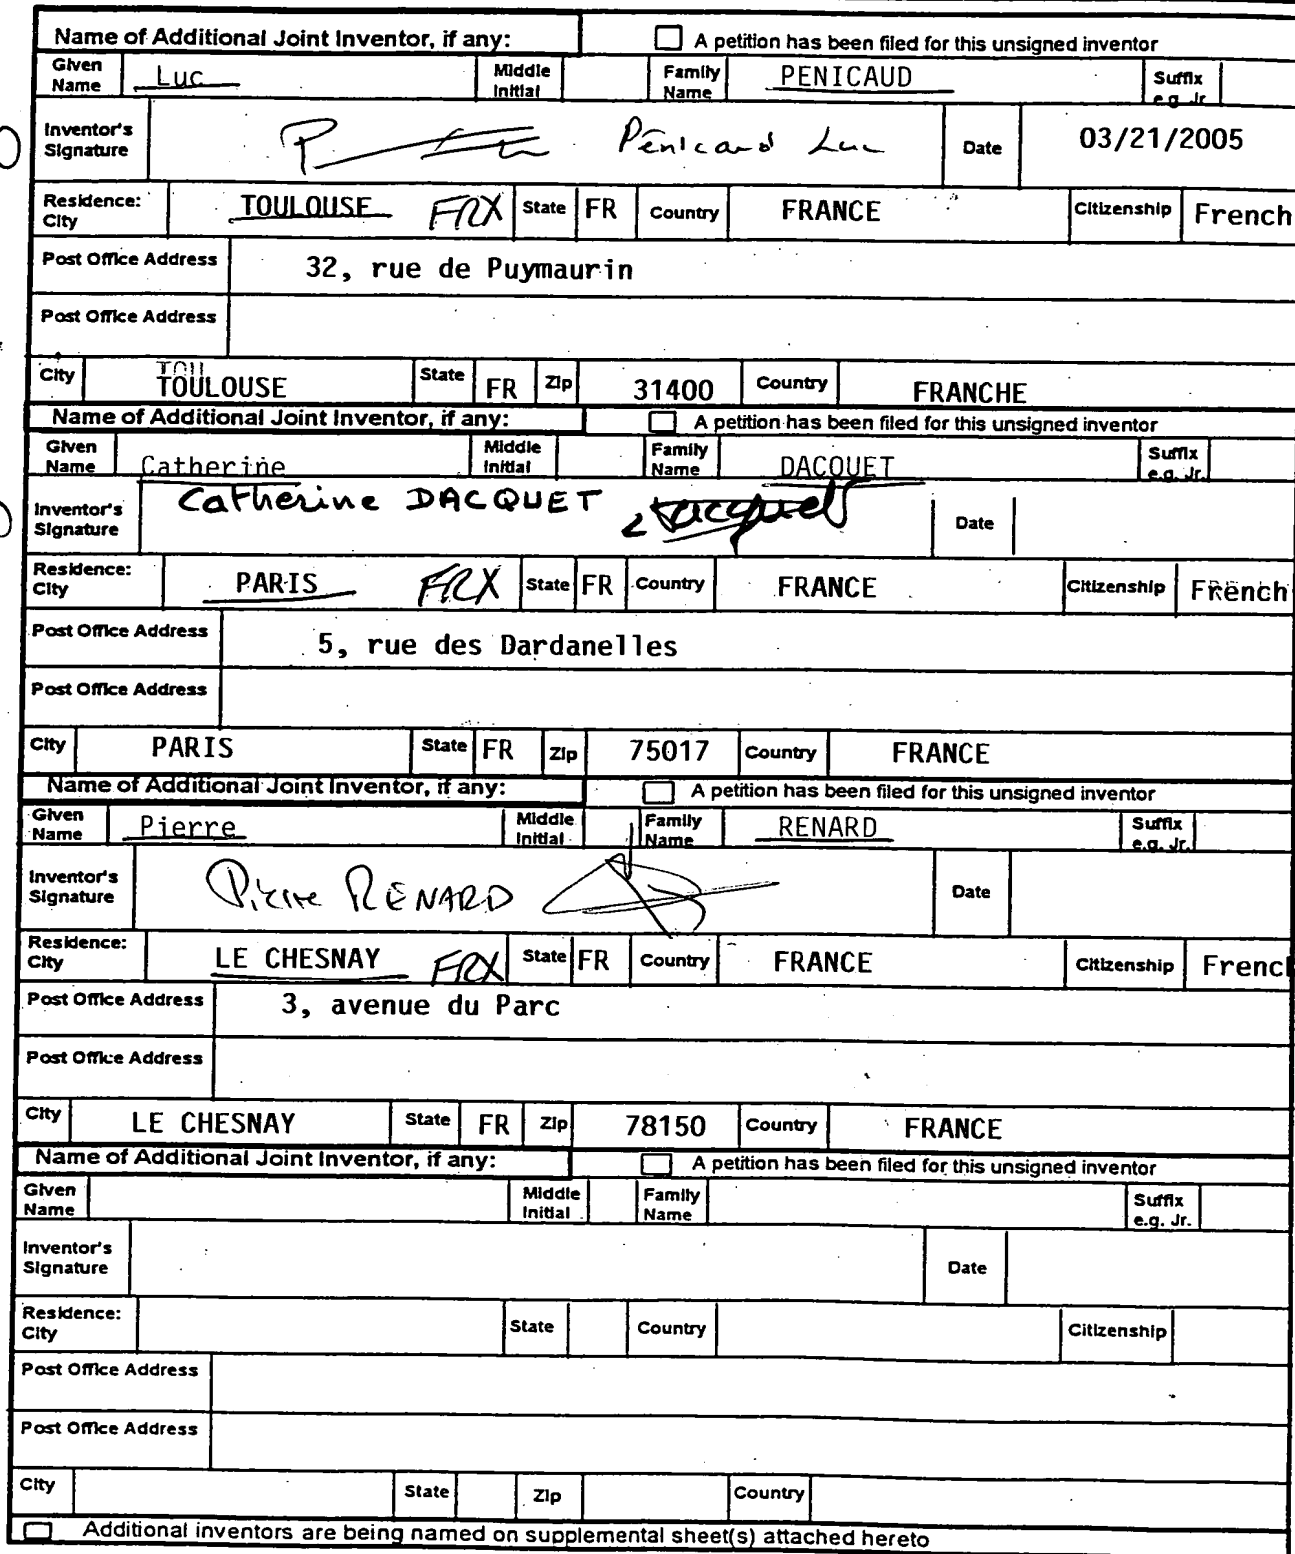 Name of Additional Joint Inventor, if any: A petition has been filed for this unsigned inventor
Given Name Luc Middle Initial Family Name PENICAUD Suffix e.g. Jr
Inventor's Signature Pénicaud Luc Date 03/21/2005
Residence: City TOULOUSE FRX State FR Country FRANCE Citizenship French
Post Office Address 32, rue de Puymaurin
Post Office Address
City TOULOUSE State FR Zip 31400 Country FRANCHE
Name of Additional Joint Inventor, if any: A petition has been filed for this unsigned inventor
Given Name Catherine Middle Initial Family Name DACQUET Suffix e.g. Jr.
Inventor's Signature Catherine DACQUET Dacquet Date
Residence: City PARIS FRX State FR Country FRANCE Citizenship French
Post Office Address 5, rue des Dardanelles
Post Office Address
City PARIS State FR Zip 75017 Country FRANCE
Name of Additional Joint Inventor, if any: A petition has been filed for this unsigned inventor
Given Name Pierre Middle Initial Family Name RENARD Suffix e.g. Jr.
Inventor's Signature Pierre RENARD Date
Residence: City LE CHESNAY FRX State FR Country FRANCE Citizenship French
Post Office Address 3, avenue du Parc
Post Office Address
City LE CHESNAY State FR Zip 78150 Country FRANCE
Name of Additional Joint Inventor, if any: A petition has been filed for this unsigned inventor
Given Name Middle Initial Family Name Suffix e.g. Jr.
Inventor's Signature Date
Residence: City State Country Citizenship
Post Office Address
Post Office Address
City State Zip Country
Additional inventors are being named on supplemental sheet(s) attached hereto